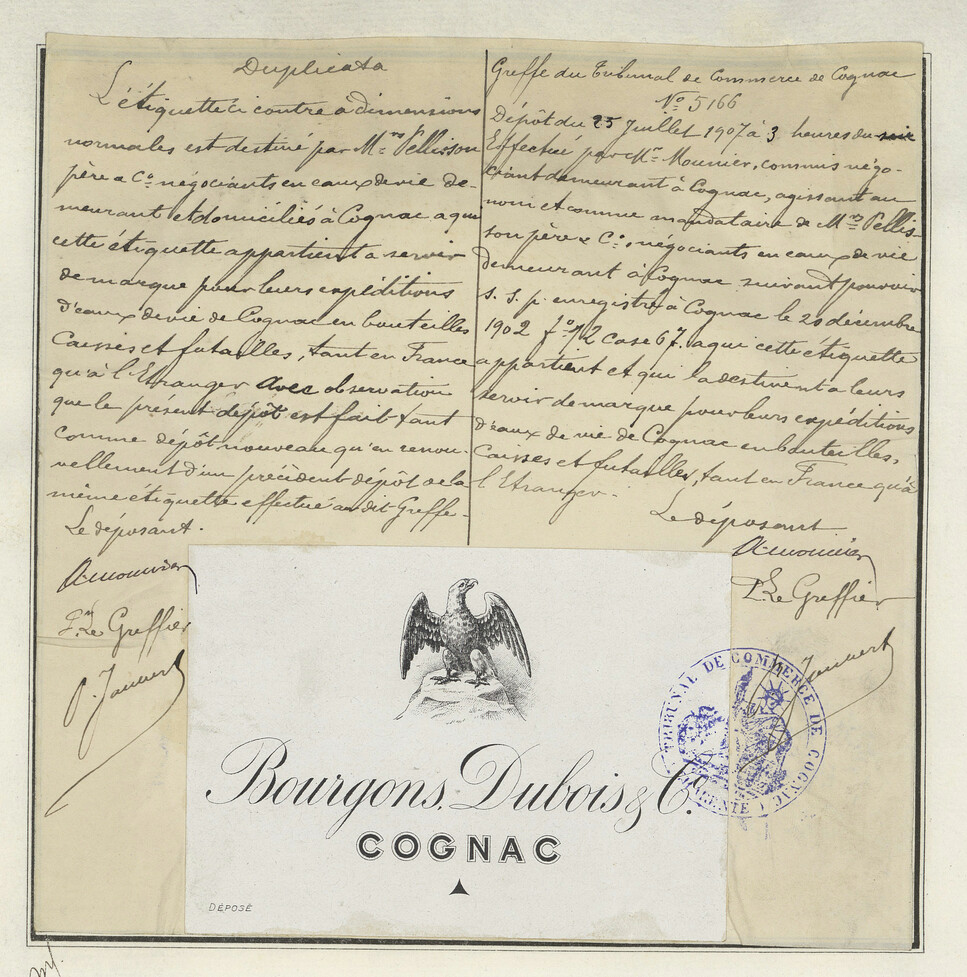 Duplicata
L'étiquette ci contre à dimensions
normales est destiné par Mrs Pellisson
père & Co. négociants en eaux de vie de-
meurant et domiciliés à Cognac a qui
cette étiquette appartient à servir
de marque pour leurs expéditions
d'eaux de vie de Cognac en bouteilles
Caisses et futailles, tant en France
qu'à l'Etranger avec observation
que le présent dépôt est fait tant
comme dépôt nouveau qu'en renou-
vellement d'un précédent dépôt de la
même étiquette effectué au dit Greffe.
Le déposant.
Pr. Le Greffier
Greffe du Tribunal de Commerce de Cognac
No 5166
Dépôt du 25 Juillet 1907 à 3 heures du soir
Effectué par Mr Mounier, commis négo-
ciant demeurant à Cognac, agissant au
nom et comme mandataire de Mrs Pellis-
son père & Co., négociants en eaux de vie
demeurant à Cognac suivant pouvoir
s. s. p. enregistré à Cognac le 20 décembre
1902 fo 12 Case 67. a qui cette étiquette
appartient et qui la destinent a leurs
servir de marque pour leurs expéditions
d'eaux de vie de Cognac en bouteilles,
Caisses et futailles, tant en France qu'à
l'Etranger.
Le déposant
Pr. Le Greffier
Bourgons, Dubois & Co.
COGNAC
DÉPOSÉ
TRIBUNAL DE COMMERCE DE COGNAC